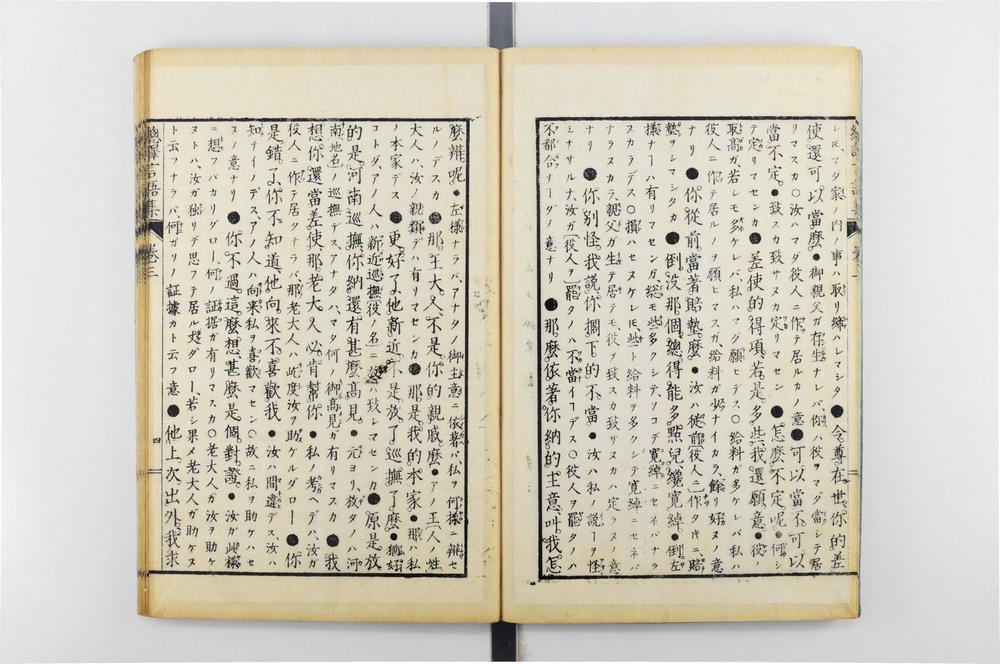 使還可以當麼●御親父ガ存生ナレバ你ハ彼ヲマダ當シテ居
リマスカ○汝ハマダ役人ニ作テ居ルカノ意●可以當不可以
當不定●致スカ致サヌカ定リマセン●怎麼不定呢●何シ
テ定リマセンカ●差使的得項若是多些我還願意●彼ノ
取高ガ若シモ多ケレバ私ハマダ願ヒデス○給料ガ多ケレバ私ハ
役人ニ作テ居ルノヲ願ヒマスガ給料ガ少ナイカラ餘リ好ヌノ意
ナリ●你從前當著賠墊麼●汝ハ從前役人ニ作タキニ賠
墊ヲシマシタカ●倒没那個總得能多點兒纔寬綽●倒左
樣ナーハ有リマセンガ総モ些多クシテソコデ寬綽ニセネバナラ
ナリ●你別怪我說你擱下的不當●汝ハ私ガ説ーヲ怪
ミナサルナ汝ガ役人ヲ罷タノハ不當イーデス○役人ヲ罷タノハ
不都合ナーダノ意ナリ●那麼依著你納的主意叫我怎
麼辨呢●左樣ナラバアナタノ御主意ニ依著バ私ヲ何樣ニ辨セ
ルノデスカ●那王大人不是你的親戚麼●アノ王人ノ姓
大人ハ汝ノ親類デハ有リマセンカ●那是我的本家●那ハ私
ノ本家デス●更好了他新近不是放了巡撫了麼●猶好
コトダアノ人ハ新近巡撫役ノ名ニ放ハ致シマセンカ●原是放
的是河南巡撫你納還有甚麼高見●元ヨリ放タノハ河
南地名ノ巡撫デスアナタハマタ何ノ御高見ガ有リマスカ●我
想你還當差使那老大人必肯幫你●私ノ考デハ汝ガ
役人ニ作テ居タナラバ那老大人ハ此度汝ヲ助ケルダロー●你
是錯了你不知道他向來不喜歡我●汝ハ間違デス汝ハ
知ナイノデスアノ人ハ向来私ヲ喜歡マセン○故ニ私ヲ助ケハセ
スノ意ナリ●你不過這麼想甚麼是個對證●汝ガ此樣
ニ想フバカリダロー何ノ証據ガ有リマスカ○老大人ガ汝ヲ助ケ
ヌトハ汝ガ獨リデ思フテ居ル丈ダロー若シ果メ老大人ガ助ケヌ
ト云フナラバ何ガリノ証據カト云フ意●他上次出外我求
卷三
四